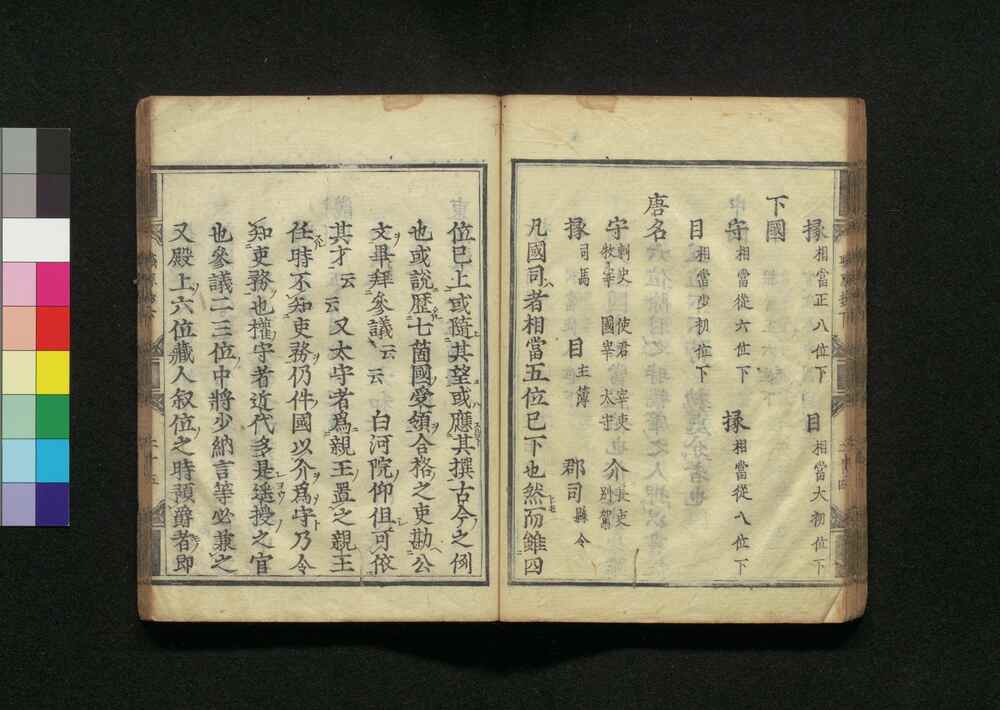 掾 相當正八位下 目 相當大初位下
下國
守 相當從六位下 掾 相當從八位下
目 相當少初位下
唐名
守 刺史 使君 宰吏 牧宰 國宰 太守 介 長史 別駕
掾 司馬 目 主簿 郡司 縣令
凡國司者相當五位已下也然而雖四
位已上或隨其望或應其撰古今之例
也或說歷七箇國受領合格之吏勘公
文畢拜參議云云 白河院仰但可依
其才云云 又太守者爲親王置之親王
任時不知吏務仍件國以介爲守乃令
知吏務也權守者近代多是遥授之官
也參議二三位中將少納言等必兼之
又殿上六位藏人叙位之時預爵者即